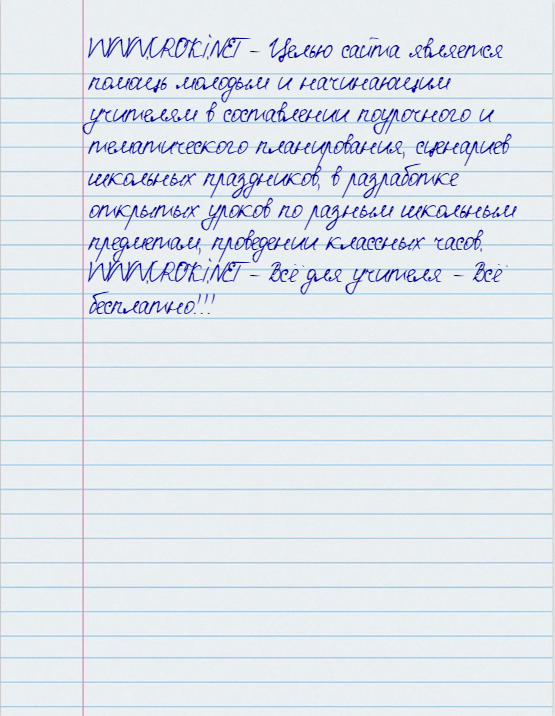 WWW.UROKI.NET – Целью сайта является
помощь молодым и начинающим
учителям в составлении поурочного и
тематического планирования, сценариев
школьных праздников, в разработке
открытых уроков по разным школьным
предметам, проведении классных часов.
WWW.UROKI.NET – Всё для учителя – Всё
бесплатно!!!